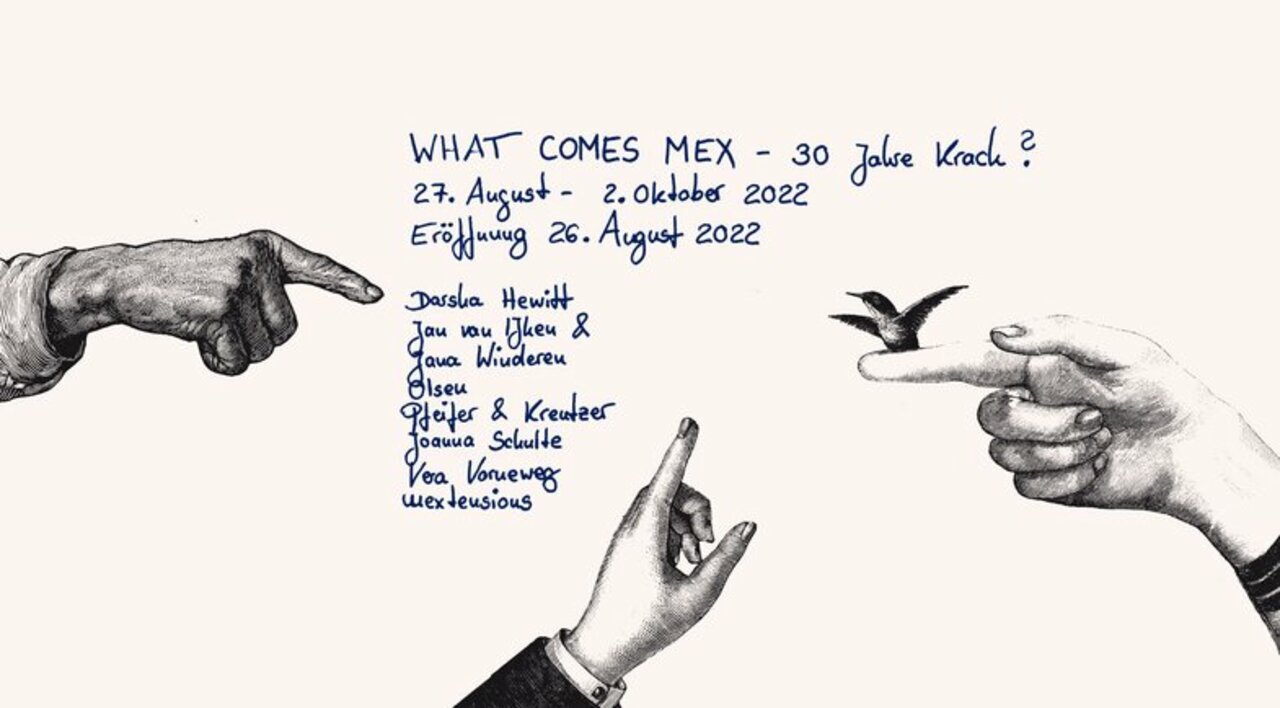 WHAT COMES MEX - 30 Jahre Krach?
27. August - 2. Oktober 2022
Eröffnung 26. August 2022
Darsha Hewitt
Jan van IJken &
Jana Winderen
Olsen
Pfeifer & Kreutzer
Joanna Schulte
Vera Vorneweg
mextensions